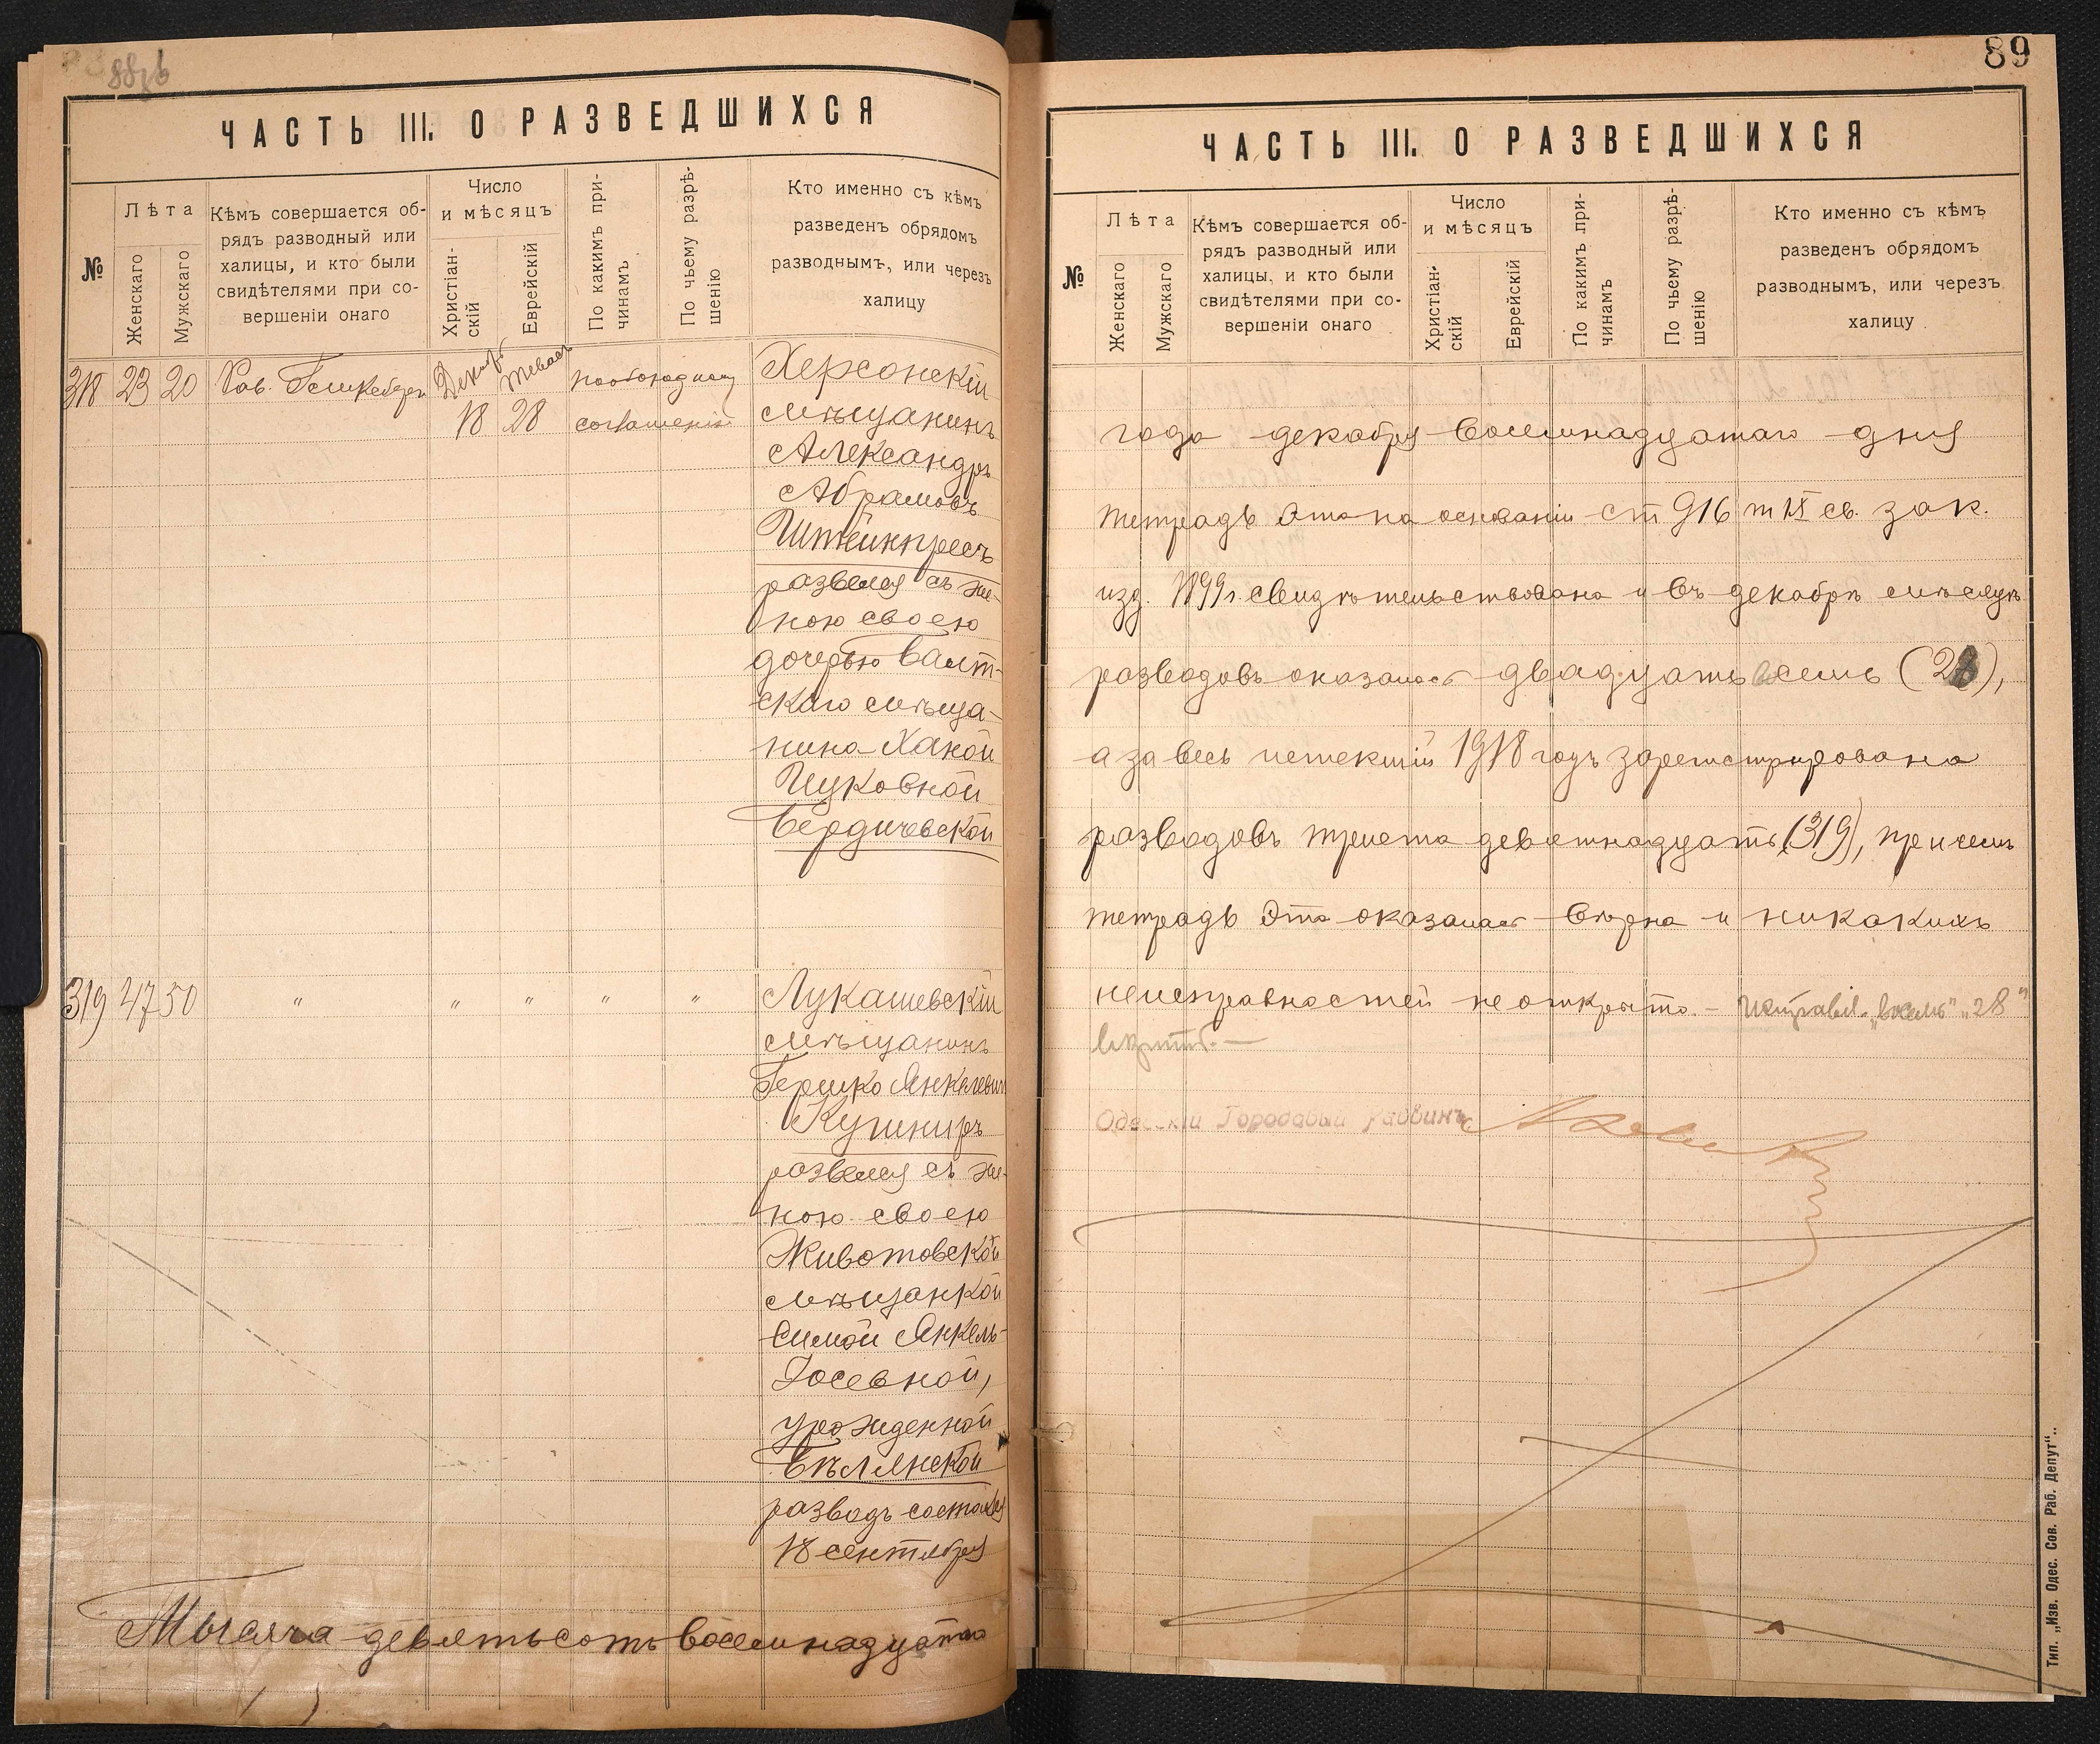 ЧАСТЬ III. О РАЗВЕДШИХСЯ
№
Лѣта
Женскаго
Мужскаго
Кѣмъ совершается об-
рядъ разводный или
халицы, и кто были
свидѣтелями при со-
вершеніи онаго
Число
и мѣсяцъ
Христіан-
скій
Еврейскій
По какимъ при-
чинамъ
По чьему разрѣ-
шенію
Кто именно съ кѣмъ
разведенъ обрядомъ
разводнымъ, или черезъ
халицу
318 23 20 Рав. Декабр. Тевес
18 28
по обоюдному
соглашенію
Херсонскій
мѣщанинъ
Александръ
Абрамовъ
Штейнпресъ
развелся съ же-
ною своею
дочерью Балт-
скаго мѣща-
нина Ханой
Ицковной
Бердичевской
319 47 50 " " " " "
Лукашевскій
мѣщанинъ
Гершко Янкелевич
Кушниръ
развелся съ же-
ною своею
Животовской
мѣщанкой
Симой Янкель-
Іосевной,
урожденной
Бѣлянской
разводъ состоялся
18 сентября
Тысяча девятьсотъ восемнадцатаго
89
ЧАСТЬ III. О РАЗВЕДШИХСЯ
№
Лѣта
Женскаго
Мужскаго
Кѣмъ совершается об-
рядъ разводный или
халицы, и кто были
свидѣтелями при со-
вершеніи онаго
Число
и мѣсяцъ
Христіан-
скій
Еврейскій
По какимъ при-
чинамъ
По чьему разрѣ-
шенію
Кто именно съ кѣмъ
разведенъ обрядомъ
разводнымъ, или черезъ
халицу
года декабря восемнадцатаго дня
тетрадь эта на основаніи ст 916 т IX св. зак.
изд. 1899 г. свидѣтельствована и въ декабрѣ мѣсяцѣ
разводовъ оказалось двадцать восемь (28),
а за весь истекшій 1918 годъ зарегистрировано
разводовъ триста девятнадцать (319), причемъ
тетрадь эта оказалась вѣрна и никакихъ
неисправностей не открыто. – Исправл. „восемь" „28"
Одесскій Городовой Раввинъ
Тип. „Изв. Одес. Сов. Раб. Депут"..